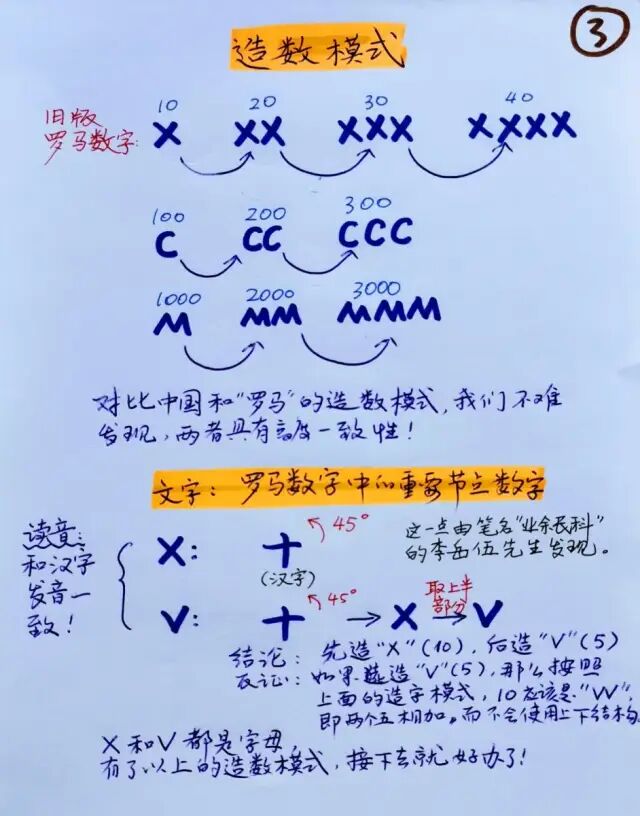 3
造数模式
旧版
罗马数字:
10 20 30 40
X XX XXX XXXX
100 200 300
C CC CCC
1000 2000 3000
M MM MMM
对比中国和"罗马"的造数模式,我们不难
发现,两者具有高度一致性!
文字: 罗马数字中的重要节点数字
读音:
和汉字
发音一
致!
X: 十 45°
(汉字)
这一点由笔名"业余民科"
的李岳伍先生发现。
V: 十 45° → X 取上半
部分 → V
结论: 先造"X"(10), 后造"V"(5)
反证: 如果先造"V"(5), 那么按照
上面的造字模式, 10应该是"VV",
即两个五相加。而不会使用上下结构
X和V都是字母
有了以上的造数模式, 接下去就好办了!